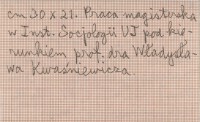 cm 30 x 21. Praca magisterska
w Inst. Socjologii UJ pod kie-
runkiem prof. dra Władysła-
wa Kwaśniewicza.